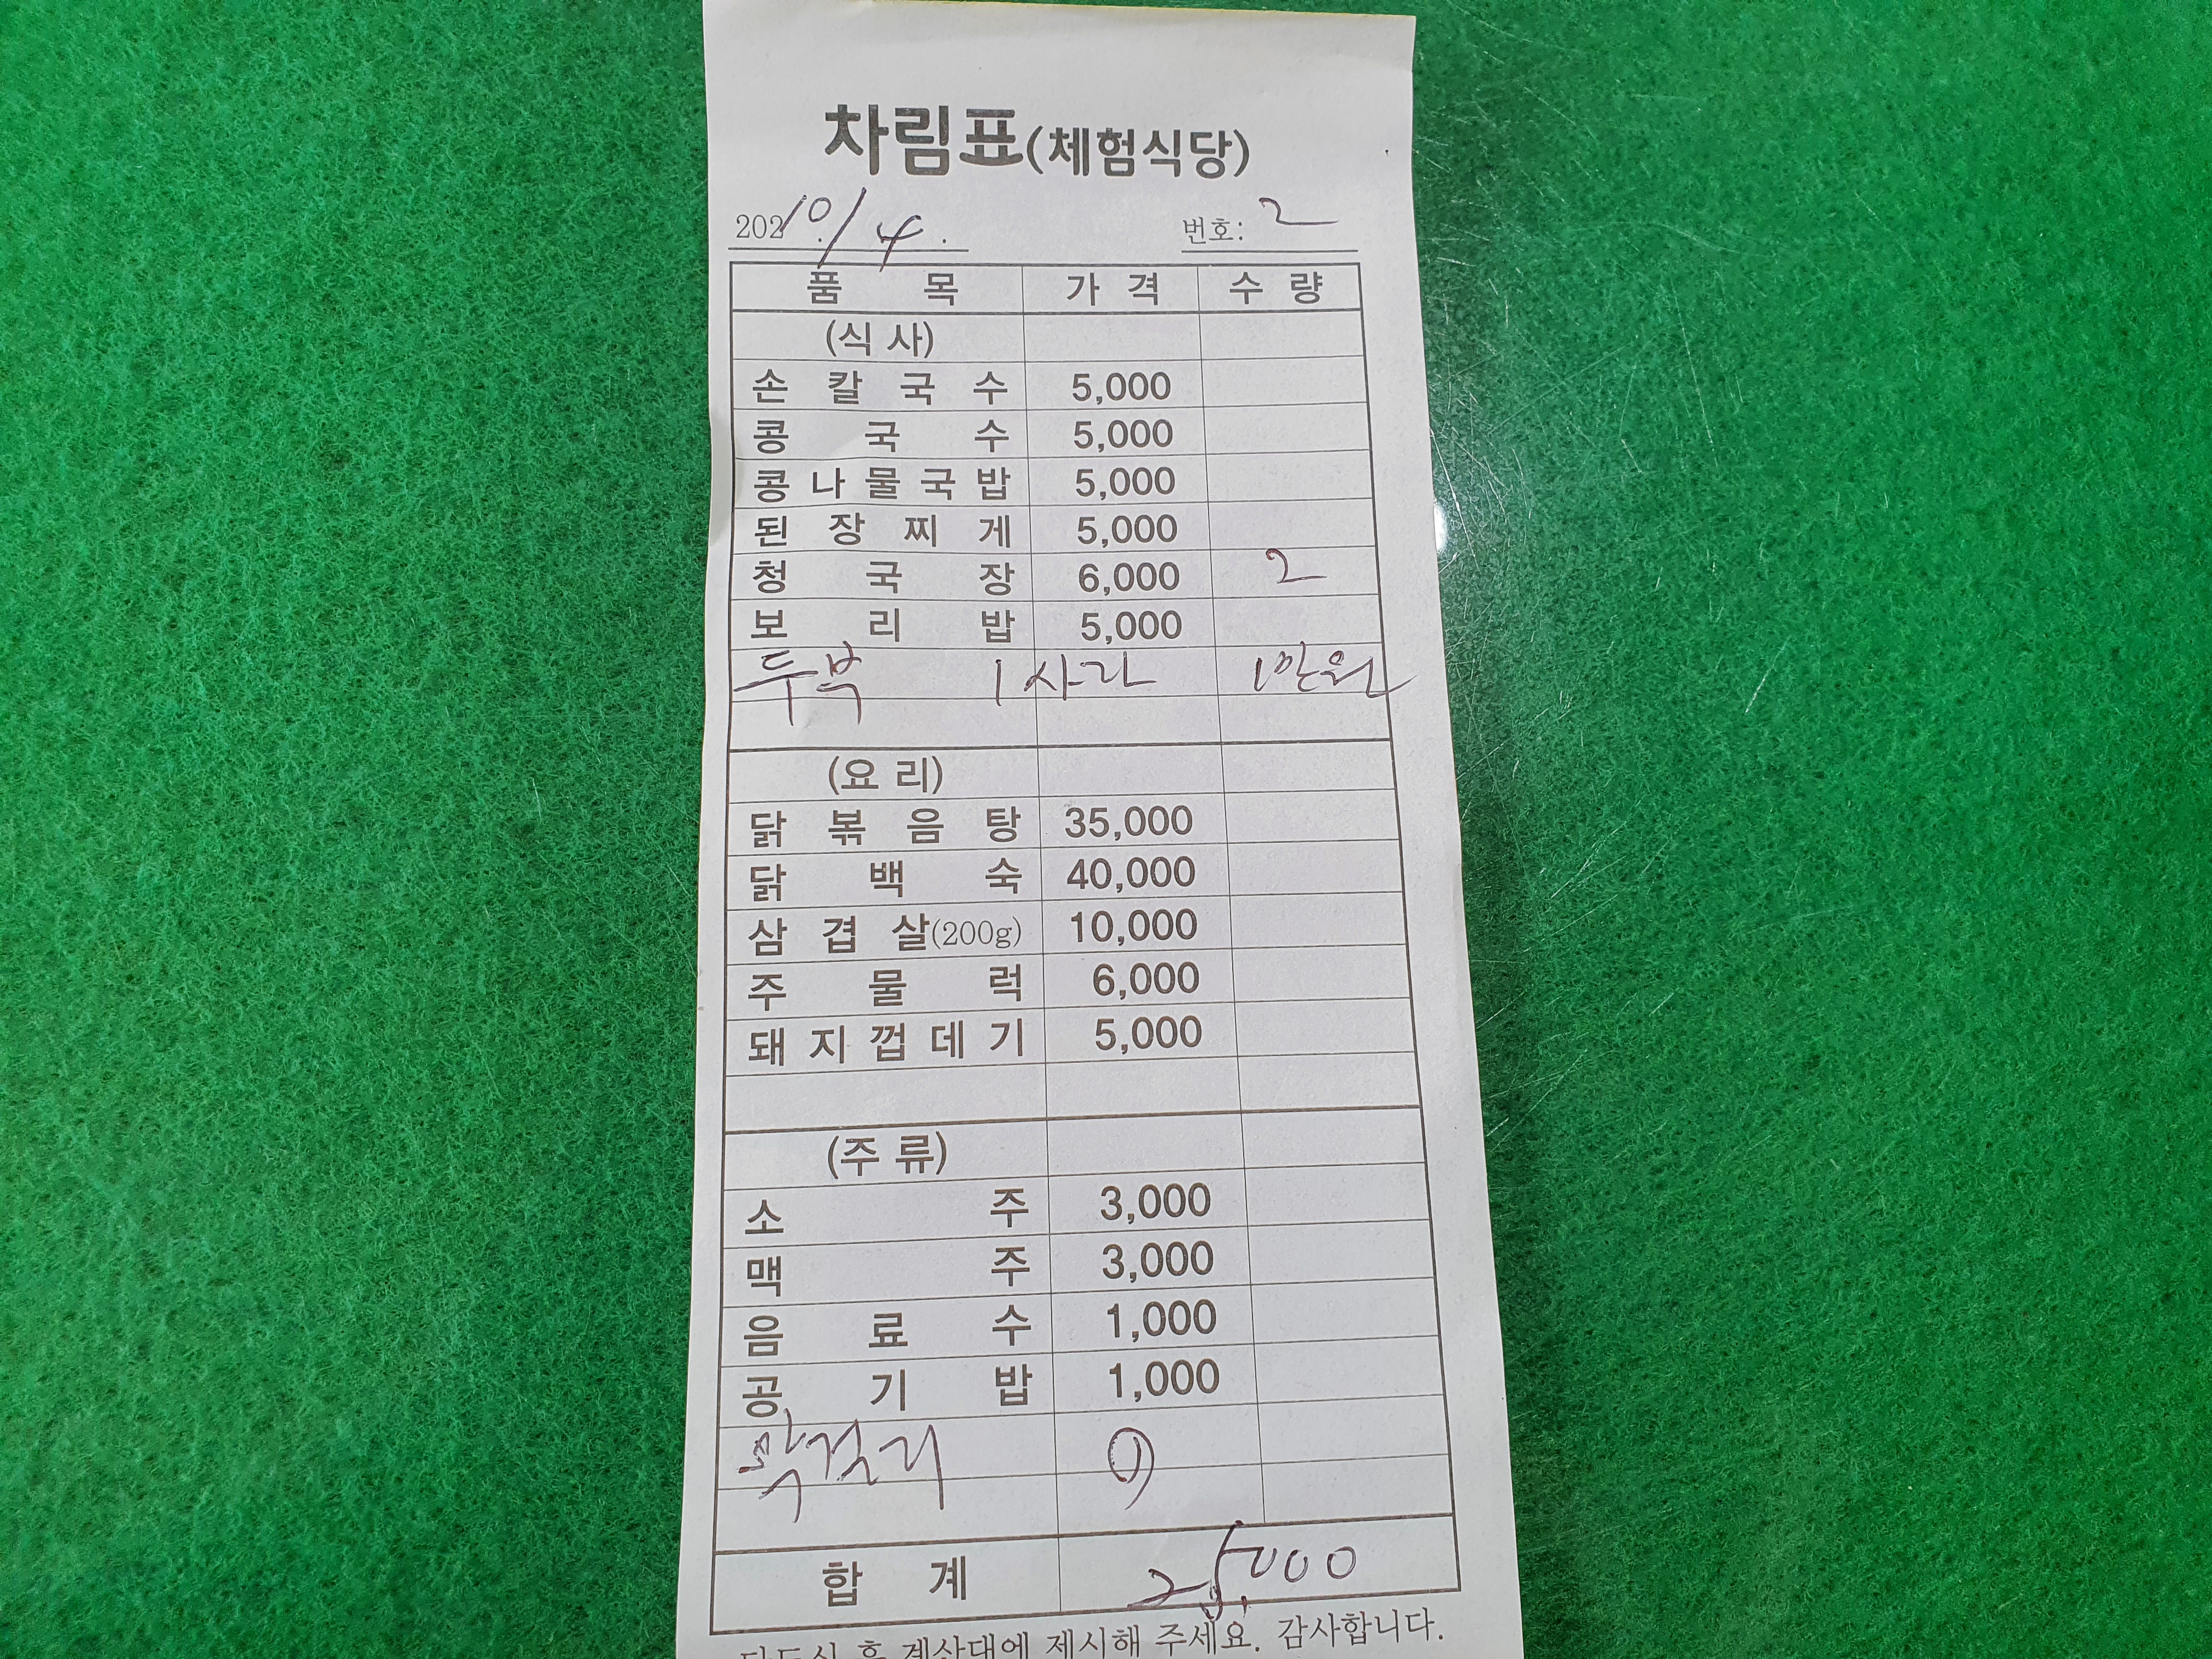 차림표(체험식당)
202 10/4.
번호: 2
품목 가격 수량
(식사)
손칼국수 5,000
콩국수 5,000
콩나물국밥 5,000
된장찌게 5,000
청국장 6,000 2
보리밥 5,000
두부 1사라 1만원
(요리)
닭볶음탕 35,000
닭백숙 40,000
삼겹살(200g) 10,000
주물럭 6,000
돼지껍데기 5,000
(주류)
소주 3,000
맥주 3,000
음료수 1,000
공기밥 1,000
막걸리
합계 25,000
후 계산대에 제시해 주세요. 감사합니다.